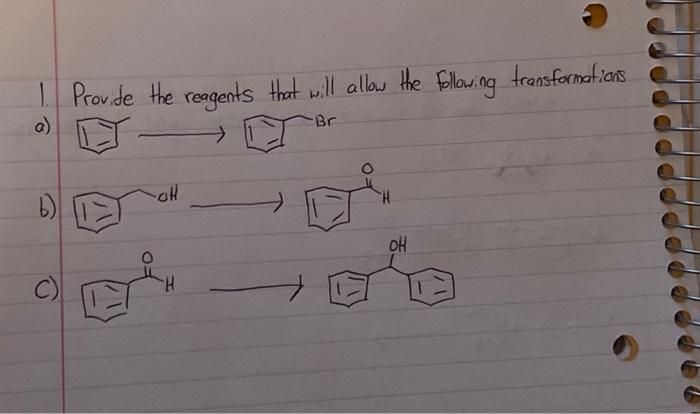 1. Provide the reagents that will allow the following transformations
a) Br
b) OH O H
c) O H OH